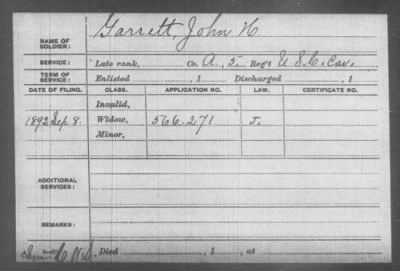 NAME OF SOLDIER: Garrett, John H.
SERVICE: Late rank, Co. A, 5 Reg't U.S.C. Cav.
TERM OF SERVICE: Enlisted , 1 Discharged , 1
DATE OF FILING. CLASS. APPLICATION NO. LAW. CERTIFICATE NO.
Invalid,
1892 Sep. 8. Widow, 566.271 J.
Minor,
ADDITIONAL SERVICES:
REMARKS:
Died , 1 , at